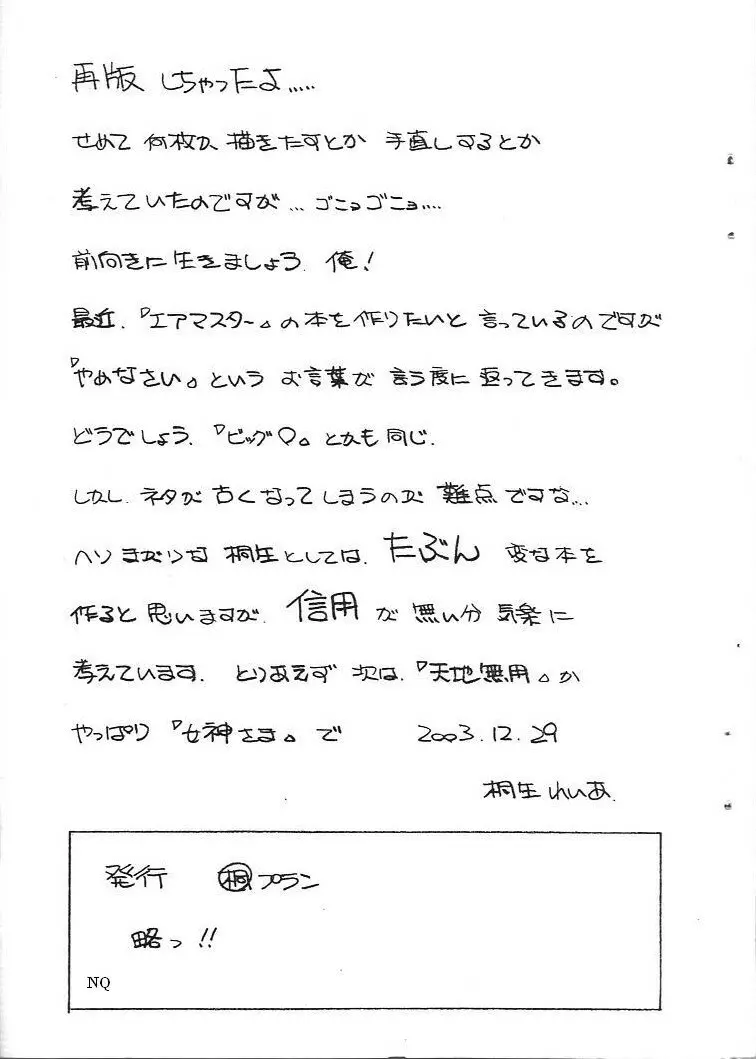 再版 しちゃったよ.....
せめて 何枚か 描きたすとか 手直しするとか
考えていたのですが... ゴニョゴニョ....
前向きに生きましょう. 俺!
最近.『エアマスター』の本を作りたいと 言っているのですが
『やめなさい』という お言葉が 言う度に 返ってきます。
どうでしょう.『ビッグO』とかも同じ.
しかし. ネタが 古くなってしまうのが 難点ですな...
ヘソまがりな 桐生としては. たぶん 変な本を
作ると思いますが. 信用 が 無い分 気楽に
考えています. とりあえず 次は.『天地無用』か
やっぱり『女神さま』で 2003.12.29
桐生れいあ.
発行 ㊑プラン
略っ!!
NQ